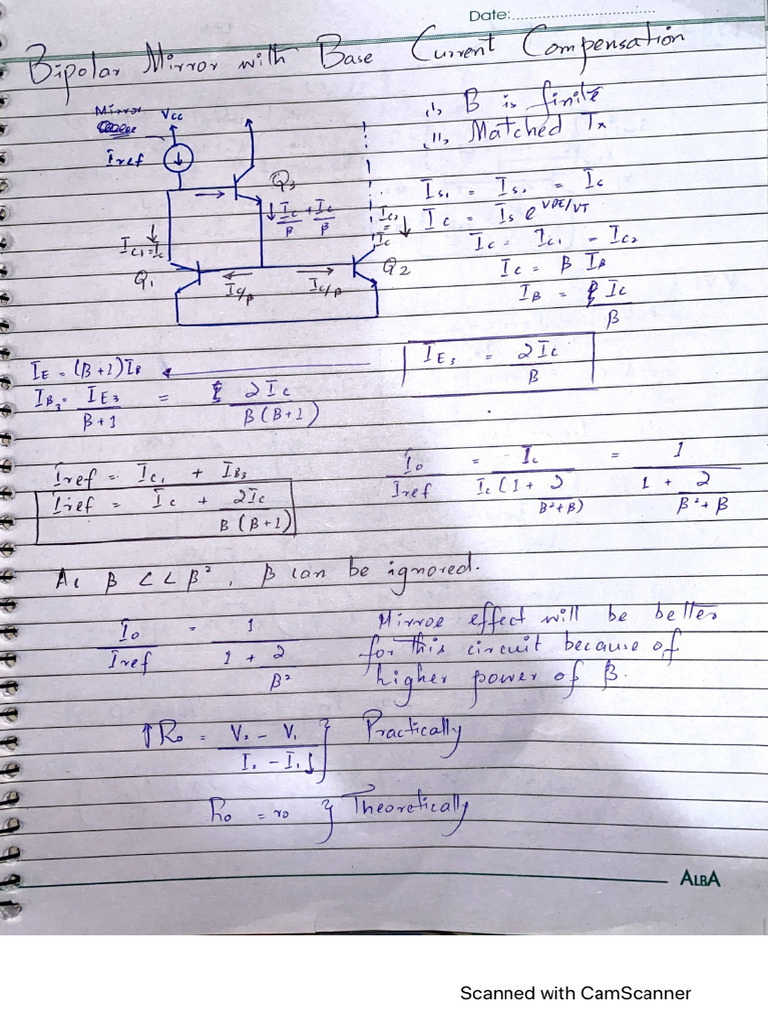 Date:
Bipolar Mirror with Base Current Compensation
Mirror
Vcc
Iref
Q3
Ic/β + Ic/β
IC1=Ic
Q1
Ic/β
Ic/β
Q2
Ic2 = Ic
(i) β is finite
(ii) Matched Tx
Is1 = Is2 = Ic
Ic = Is e^VBE/VT
Ic = Ic1 - Ic2
Ic = β IB
IB = Ic/β
IE3 = 2Ic/β
IE = (β+1)IB
IB3 = IE3/β+1 = 2Ic/β(β+1)
Iref = Ic1 + IB3
Iref = Ic + 2Ic/β(β+1)
Io/Iref = Ic/Ic(1 + 2/β²+β) = 1/1 + 2/β²+β
As β << β², β can be ignored.
Io/Iref = 1/1 + 2/β²
Mirror effect will be better
for this circuit because of
higher power of β.
↑Ro = V2 - V1/I2 - I1↓ } Practically
Ro = ro } Theoretically
ALBA
Scanned with CamScanner